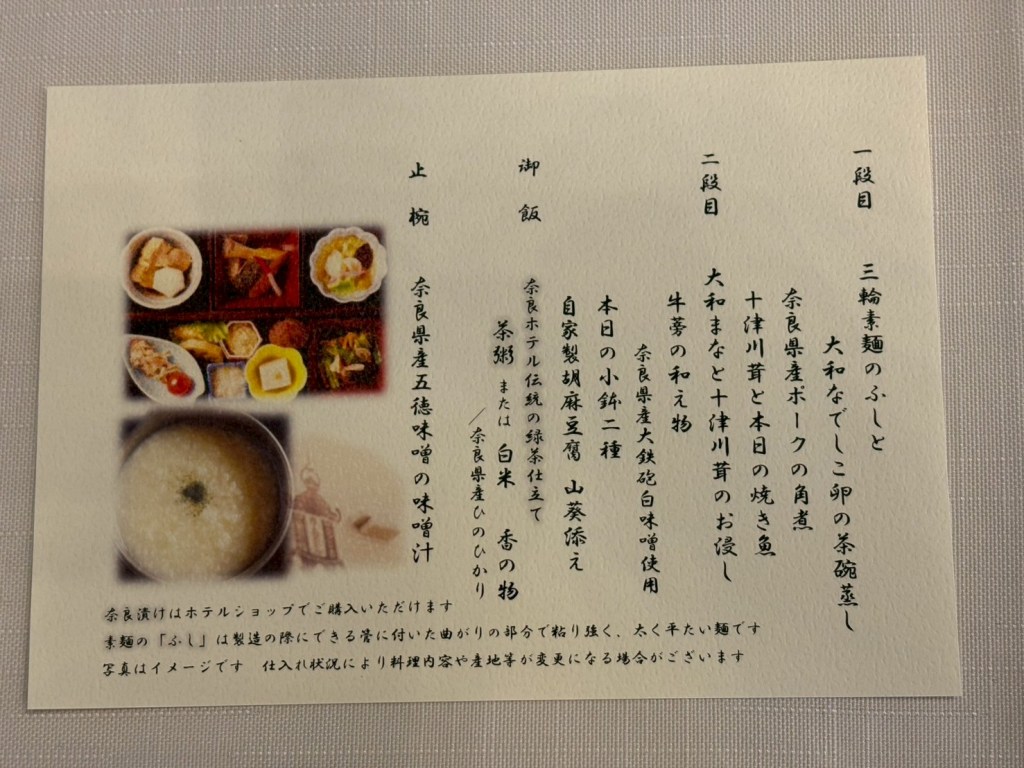 一段目　三輪素麺のふしと
大和なでしこ卵の茶碗蒸し
奈良県産ポークの角煮
十津川茸と本日の焼き魚
二段目　大和まなと十津川茸のお浸し
牛蒡の和え物
奈良県産大鉄砲白味噌使用
本日の小鉢二種
自家製胡麻豆腐　山葵添え
御飯　奈良ホテル伝統の緑茶仕立て
茶粥　または　白米　香の物
／奈良県産ひのひかり
止椀　奈良県産五徳味噌の味噌汁
奈良漬けはホテルショップでご購入いただけます
素麺の「ふし」は製造の際にできる管に付いた曲がりの部分で粘り強く、太く平たい麺です
写真はイメージです　仕入れ状況により料理内容や産地等が変更になる場合がございます